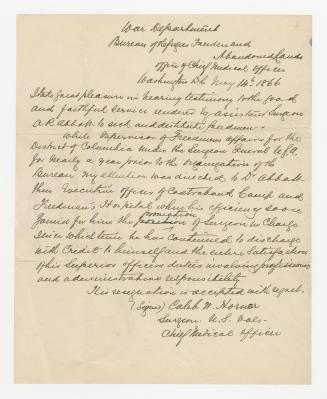 War Department
Bureau of Refugees Freedmen and
Abandoned Lands
Office of Chief Medical Officer
Washington D.C. May 14th 1866
I take great pleasure in bearing testimony to the good
and faithful service rendered by Assistant Surgeon
A R Abbott to sick and destitute freedmen.
While Supervisor of Freedmens affairs for the
District of Columbia under the Surgeon General U.S.A.
for nearly a year prior to the organization of the
Bureau my attention was directed to Dr Abbott
then Executive officer of Contraband Camp and
Freedman's Hospital when his efficiency soon
gained for him the promotion of Surgeon in Charge
Since which time he has continued to discharge
with Credit to himself and the entire Satisfaction
of his Superior officers duties involving professional
and administrative responsibility.
His resignation is accepted with regret.
(Signed) Caleb W. Horner
Surgeon. U.S. Vols-
Chief Medical Officer